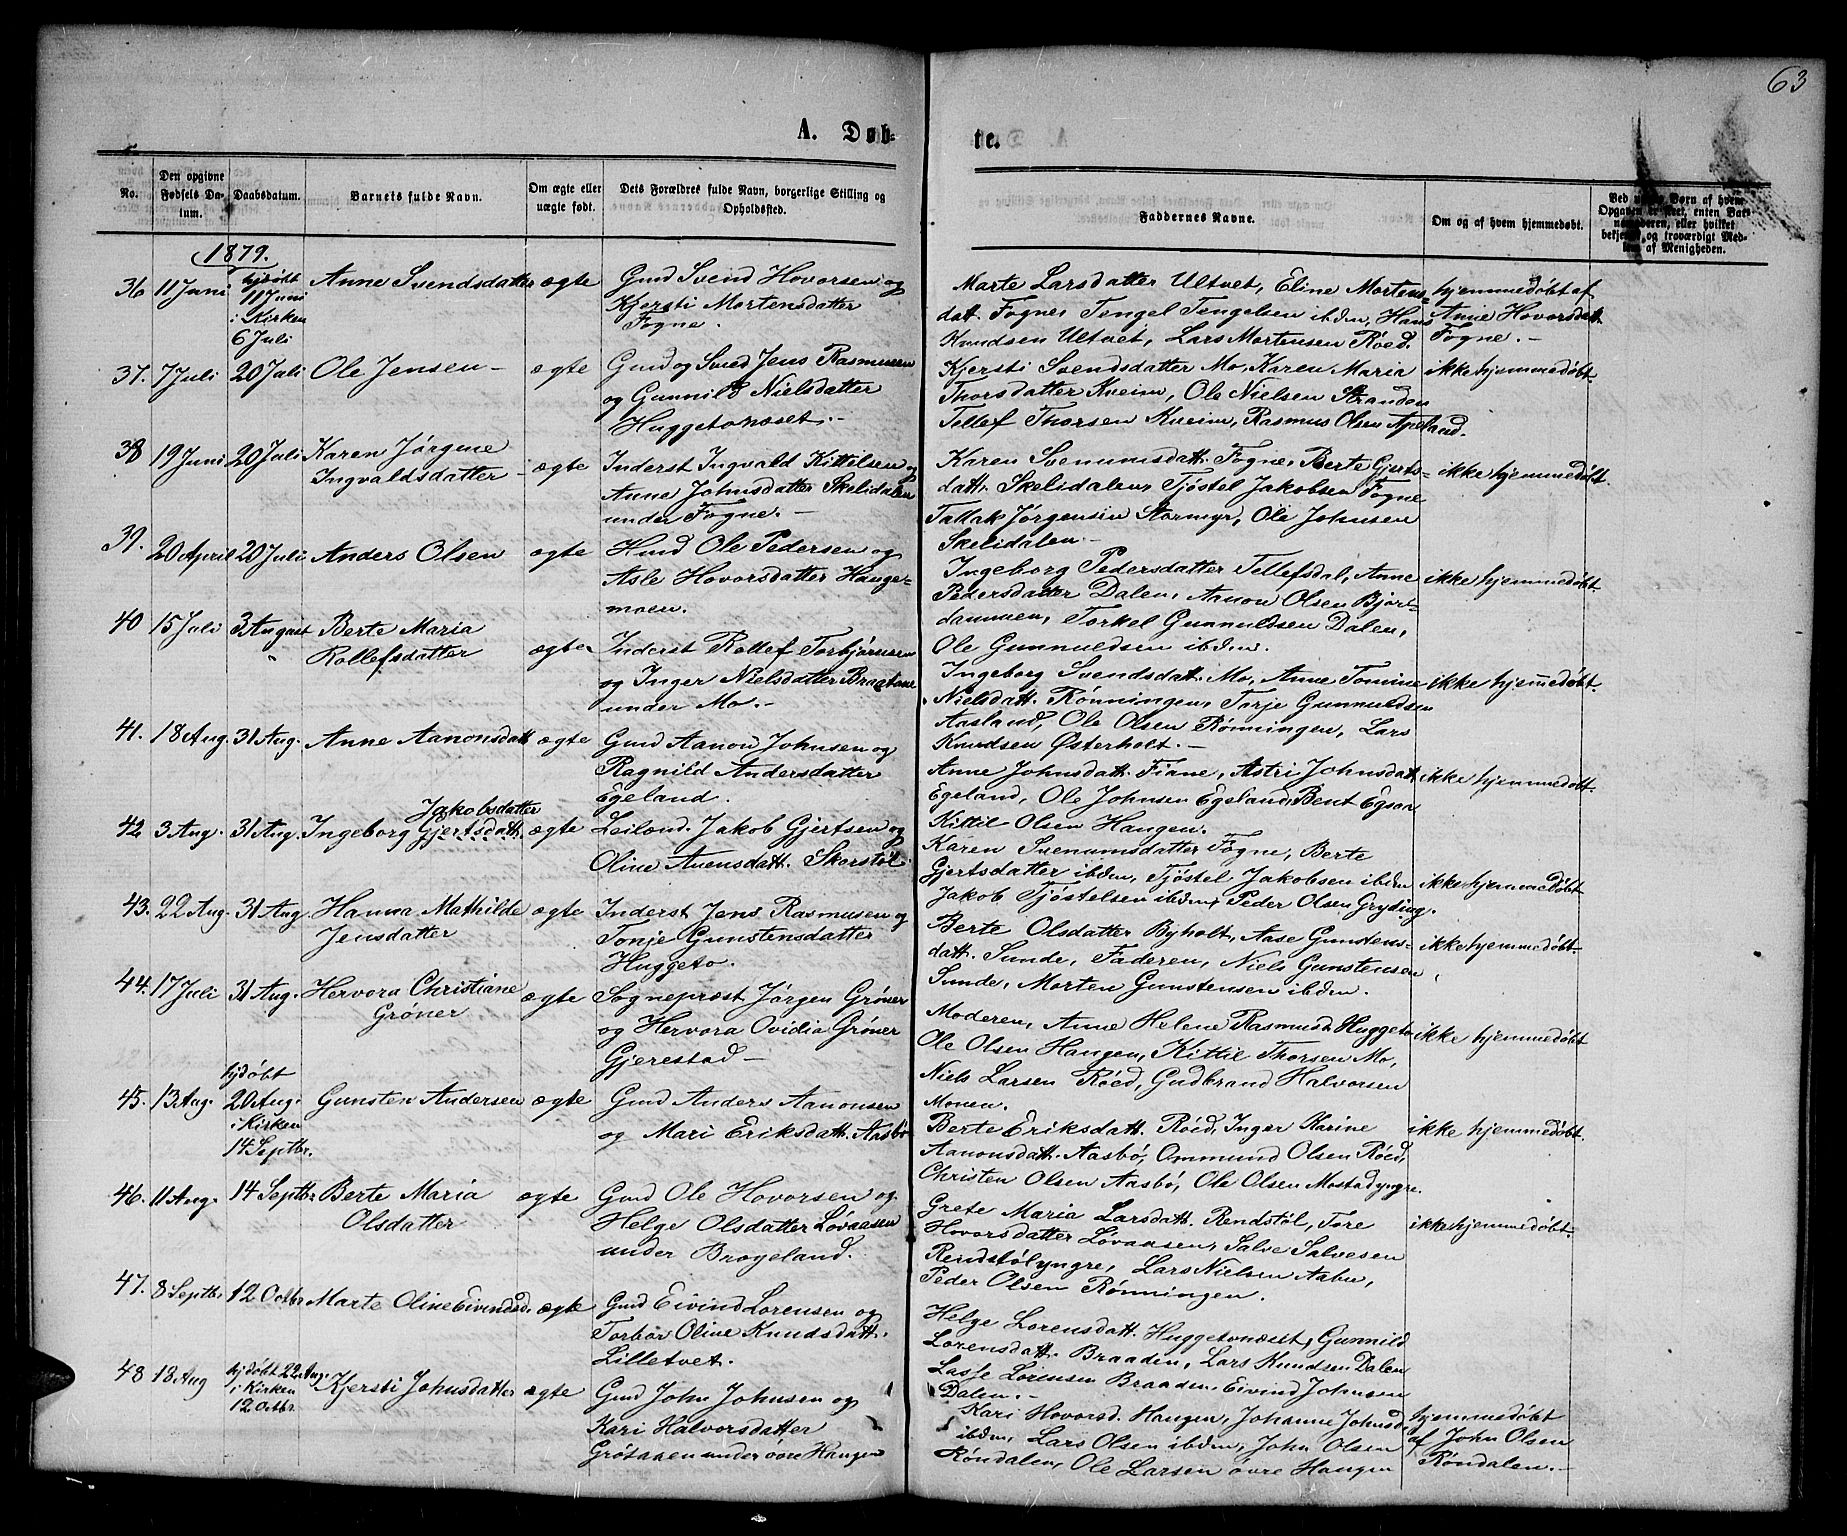 63
A. Døbte.
No.
Den opgivne Fødsels Datum.
Daabsdatum.
Barnets fulde Navn.
Om ægte eller uægte født.
Dets Forældres fulde Navn, borgerlige Stilling og Opholdssted.
Faddernes Navne.
Om og af hvem hjemmedøbt.
1879.
36 11 Juni hjdøbt 11 Juni i Kirken 6 Juli Anne Svendsdatter ægte
Gmd Svend Hovorsen og
Kjersti Mortensdatter
Fogne.
Marte Larsdatter Ultvet, Eline Mortens-
datt. Fogne, Tengel Tengelsen ibdm, Hans
Knudsen Ultvet, Lars Mortensen Röed.
hjemmedøbt af
Anne Hovorsdatt.
Fogne.-
37. 7 Juli 20 Juli Ole Jensen- ægte
Gmd og Smed Jens Rasmusen
og Gunnild Nielsdatter
Huggetonæset.-
Kjersti Svendsdatter Mo, Karen Maria
Thorsdatter Kveim, Ole Nielsen Stranden
Tellef Thorsen Kveim, Rasmus Olsen Apeland.
ikke hjemmedøbt
38 19 Juni 20 Juli Karen Jørgine
Ingvaldsdatter - ægte
Inderst Ingvald Kittilsen og
Anne Johnsdatter Skelidalen
under Fogne.-
Karen Svenumsdatt. Fogne, Berte Gjerts-
datt. Skelidalen, Tjöstel Jakobsen Fogne
Tallak Jørgensen Stormyr, Ole Johnsen
Skelidalen.-
ikke hjemmedøbt.
39. 20 April 20 Juli Anders Olsen ægte
Hmd Ole Pedersen og
Asle Hovorsdatter Hauge-
moen.
Ingeborg Pedersdatter Tellefsdal, Anne
Pedersdatter Dalen, Aanon Olsen Bjor-
dammen, Torkel Gunnuldsen Dalen,
Ole Gunnuldsen ibdm.
ikke hjemmedøbt
40 15 Juli 3 August Berte Maria
Rollefsdatter ægte
Inderst Rollef Torbjörnsen
og Inger Nielsdatter Braatane
under Mo.-
Ingeborg Svendsdatt. Mo, Anne Tomine
Nielsdatt. Rönningen, Torje Gunnuldsen
Aasland, Ole Olsen Rönningen, Lars
Knudsen Østerholt.-
ikke hjem̄edøbt.
41. 18 Aug. 31 Aug. Anne Aanonsdatt ægte
Gmd Aanon Johnsen og
Ragnild Andersdatter
Egeland.
Anne Johnsdatt. Fiane, Astri Johnsdatt
Egeland, Ole Johnsen Egeland, Bent Egsaa
Kittil Olsen Haugen.
ikke hjemmedøbt.
42 3 Aug. 31 Aug. Ingeborg Gjertsdatt. ægte
Jakobsdatter
Leilænd. Jakob Gjertsen og
Oline Avensdatt. Skorstøl.
Karen Svenumsdatter Fogne, Berte
Gjertsdatter ibdm, Tjöstel Jakobsen ibdm
Jakob Tjöstelsen ibdm, Peder Olsen Gryting.
ikke hjemmedøbt
43. 22 Aug. 31 Aug. Hanna Mathilde
Jensdatter ægte
Inderst Jens Rasmusen og
Tonje Gunstensdatter
Huggeto.
Berte Olsdatter Byholt, Aase Gunstens-
datt. Sunde, Faderen, Niels Gunstensen
Sunde, Morten Gunstensen ibdm.
ikke hjemmedøbt.
44. 17 Juli 31 Aug. Hervora Christiane
Grøner ægte
Sognepræst Jørgen Grøner
og Hervora Ovidia Grøner
Gjerestad-
Moderen, Anne Helene Rasmusd. Huggeto
Ole Olsen Haugen, Kittil Thorsen Mo,
Niels Larsen Röed, Gudbrand Halvorsen
Monen.
ikke hjemmedøbt
45. 13 Aug. hjdøbt 20 Aug. i Kirken 14 Septbr. Gunsten Andersen ægte
Gmd Anders Aanonsen
og Mari Eriksdatt. Aasbö
Berte Eriksdatt. Röed, Inger Karine
Aanonsdatt. Aasbö, Ommund Olsen Röed,
Christen Olsen Aasbö, Ole Olsen Mostadyngre.
ikke hjemmedøbt.
46. 11 Aug. 14 Septbr Berte Maria
Olsdatter ægte
Gmd Ole Hovorsen og
Helge Olsdatter Lövaasen
under Brogeland.
Grete Maria Larsdatt. Rendstöl, Tore
Hovorsdatter Lövaasen, Salve Salvesen
Rendstölyngre, Lars Nielsen Aabu,
Peder Olsen Rönningen.
ikke hjemmedøbt.
47. 8 Septbr. 12 Octbr Marte Oline Eivindsd. ægte
Gmd Eivind Lorensen og
Torbor Oline Knudsdatt.
Lilletvet.
Helge Lorensdatt. Huggetonæset, Gunnild
Lorensdatt. Braaden, Lars Knudsen Dalen
Lasse Lorensen Braaden, Eivind Johnsen
Dalen.-
48 18 Aug hjdøbt 22 Aug. i Kirken 12 Octbr. Kjersti Johnsdatter ægte
Gmd John Johnsen og
Kari Halvorsdatter
Grötaaen under övre Haugen
Kari Hovorsd. Haugen, Johanne Johnsd.
ibdm, Lars Olsen ibdm, John Olsen
Röndalen, Ole Larsen övre Haugen
hjemmedøbt
af John Olsen
Röndalen.-